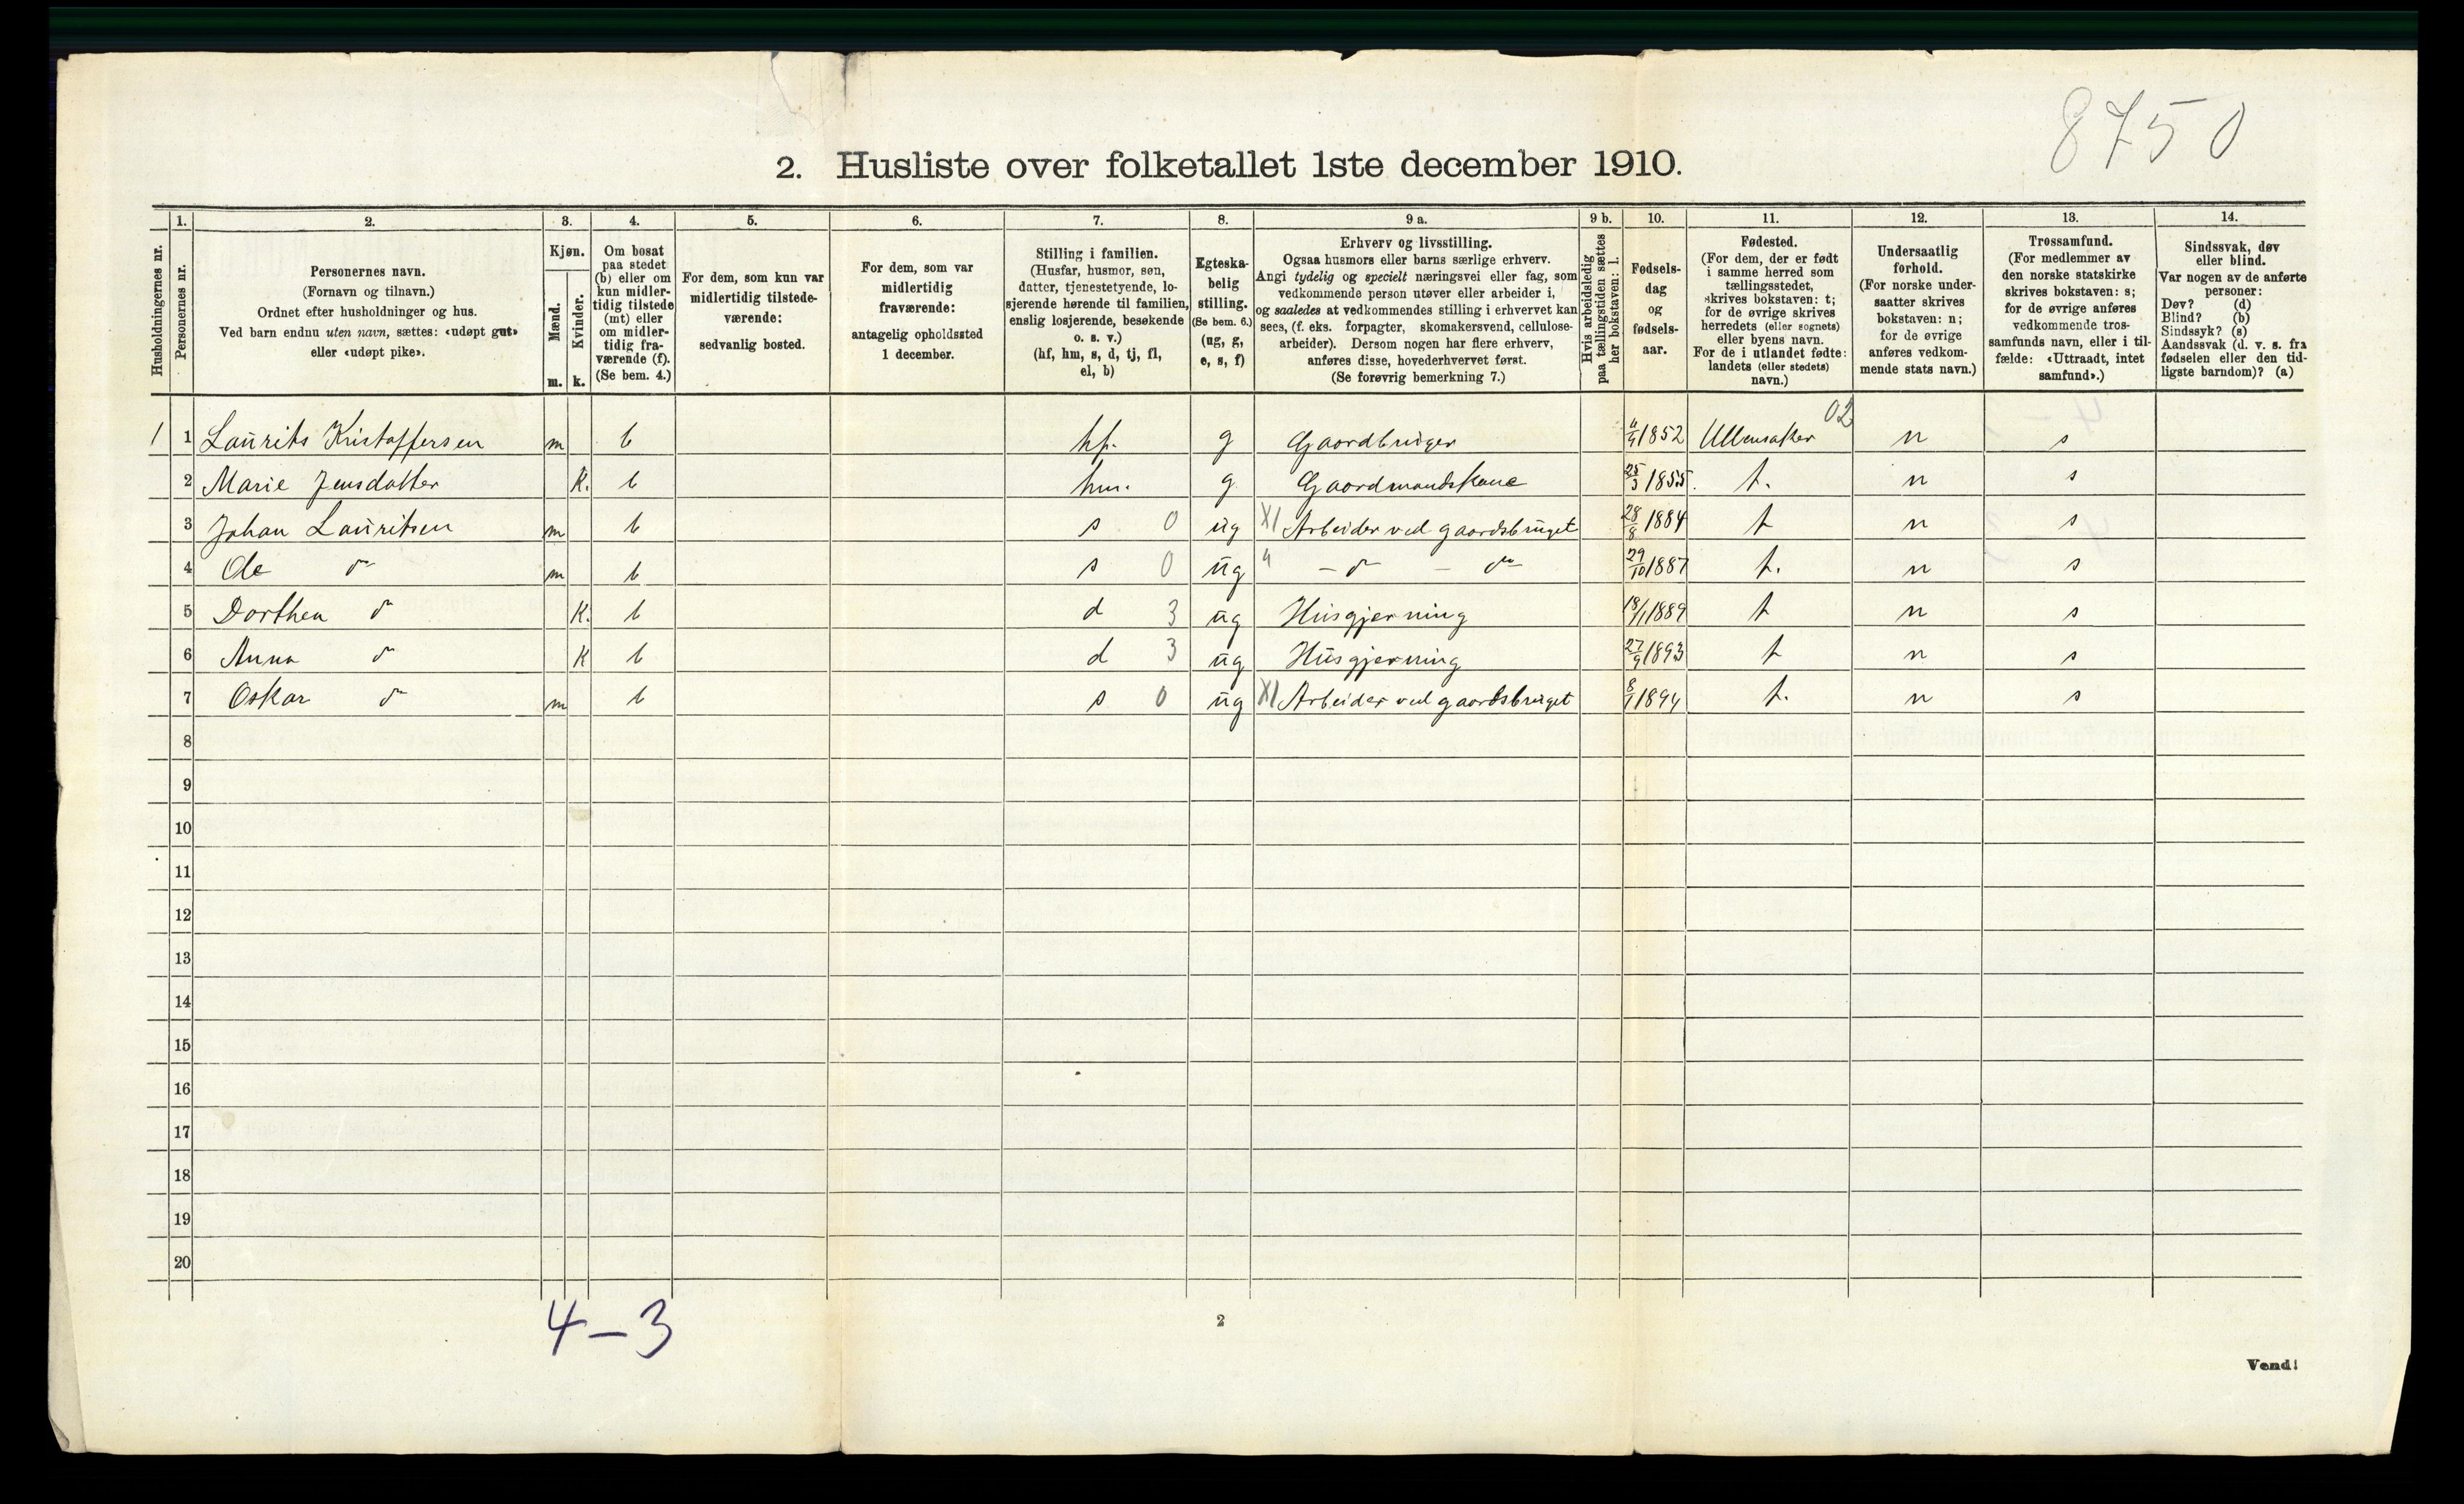 8750
2. Husliste over folketallet 1ste december 1910.
Husholdningernes nr.
1.
Personernes nr.
2.
Personernes navn.
(Fornavn og tilnavn.)
Ordnet efter husholdninger og hus.
Ved barn endnu uten navn, sættes: «udøpt gut»
eller «udøpt pike».
3.
Kjøn.
Mænd.
m.
Kvinder.
k.
4.
Om bosat
paa stedet
(b) eller om
kun midler-
tidig tilstede
(mt) eller
om midler-
tidig fra-
værende (f).
(Se bem. 4.)
5.
For dem, som kun var
midlertidig tilstede-
værende:
sedvanlig bosted.
6.
For dem, som var
midlertidig
fraværende:
antagelig opholdssted
1 december.
7.
Stilling i familien.
(Husfar, husmor, søn,
datter, tjenestetyende, lo-
sjerende hørende til familien,
enslig losjerende, besøkende
o. s. v.)
(hf, hm, s, d, tj, fl,
el, b)
8.
Egteska-
belig
stilling.
(Se bem. 6.)
(ug, g,
e, s, f)
9 a.
Erhverv og livsstilling.
Ogsaa husmors eller barns særlige erhverv.
Angi tydelig og specielt næringsvei eller fag, som
vedkommende person utøver eller arbeider i,
og saaledes at vedkommendes stilling i erhvervet kan
sees, (f. eks. forpagter, skomakersvend, cellulose-
arbeider). Dersom nogen har flere erhverv,
anføres disse, hovederhvervet først.
(Se forøvrig bemerkning 7.)
9 b.
Hvis arbeidsledig
paa tællingstiden sættes
her bokstaven: l.
10.
Fødsels-
dag
og
fødsels-
aar.
11.
Fødested.
(For dem, der er født
i samme herred som
tællingsstedet,
skrives bokstaven: t;
for de øvrige skrives
herredets (eller sognets)
eller byens navn.
For de i utlandet fødte:
landets (eller stedets)
navn.)
12.
Undersaatlig
forhold.
(For norske under-
saatter skrives
bokstaven: n;
for de øvrige
anføres vedkom-
mende stats navn.)
13.
Trossamfund.
(For medlemmer av
den norske statskirke
skrives bokstaven: s;
for de øvrige anføres
vedkommende tros-
samfunds navn, eller i til-
fælde: «Uttraadt, intet
samfund».)
14.
Sindssvak, døv
eller blind.
Var nogen av de anførte
personer:
Døv? (d)
Blind? (b)
Sindssyk? (s)
Aandssvak (d. v. s. fra
fødselen eller den tid-
ligste barndom)? (a)
02
1 1 Laurits Kristoffersen m b hf. g Gaardbruger 1852 Ullensaker n s
2 Marie Jensdatter K. b hm. g Gaardmandskone 25/3 1855. t. n s
3 Johan Lauritsen m b s 0 ug XI Arbeider ved gaardsbruget 28/8 1884 t n s
4 Ole do m b s 0 ug " - do - do 29/10 1887 t. n s
5 Dorthea do K. b d 3 ug Husgjerning 18/1 1889 t n s
6 Anna do K b d 3 ug Husgjerning 27/9 1893 t n s
7 Oskar do m b s 0 ug XI Arbeider ved gaardsbruget 8/1 1894 t. n s
8
9
10
11
12
13
14
15
16
17
18
19
20
4-3
2
Vend!